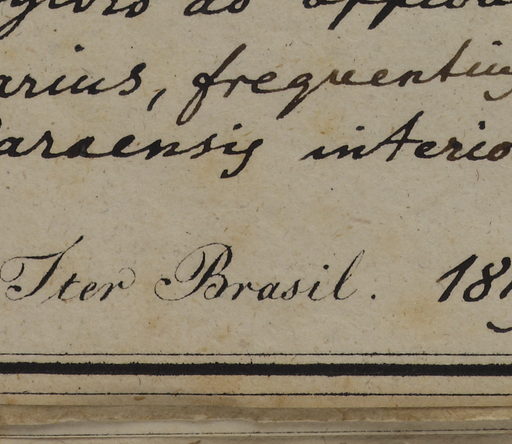 arius, frequentius
araensis interio
Iter Brasil. 181